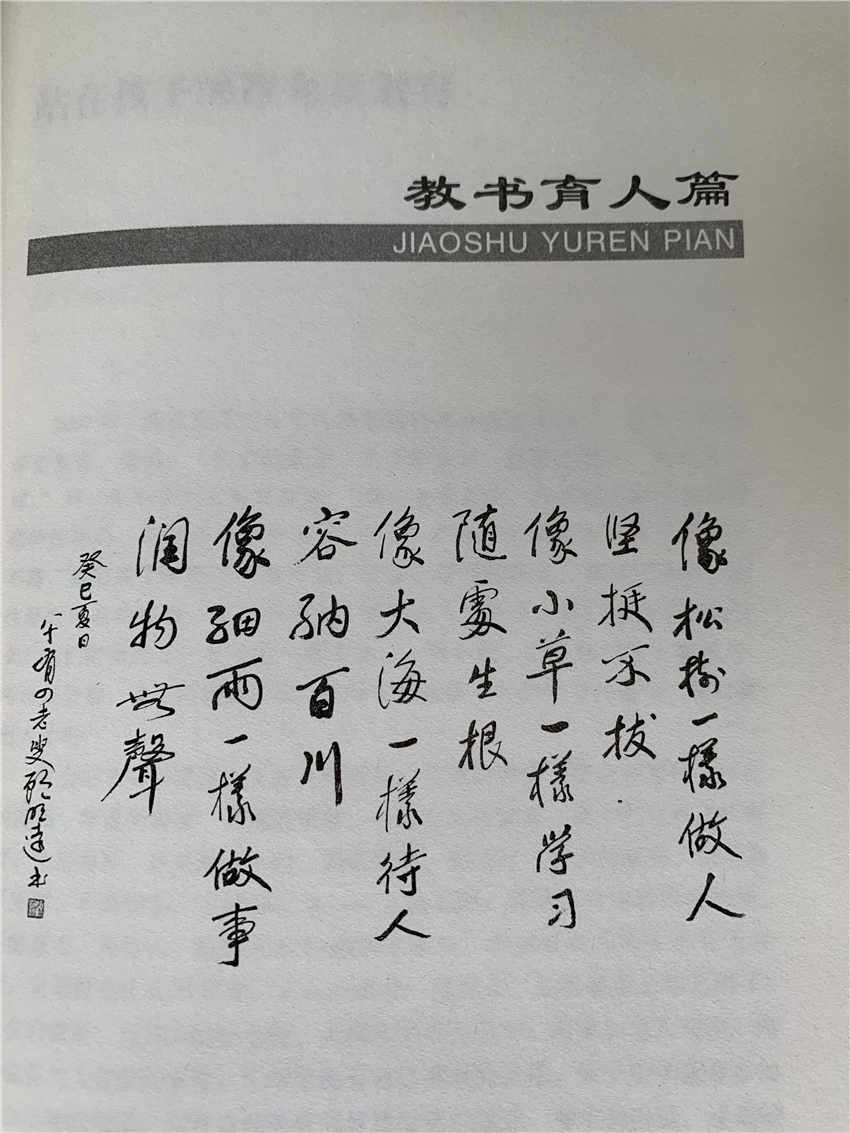 教书育人篇
JIAOSHU YUREN PIAN
像松树一樣做人
坚挺不拔
像小草一樣学习
随處生根
像大海一樣待人
容纳百川
像细雨一樣做事
润物無聲
癸巳夏日
八十有四老叟